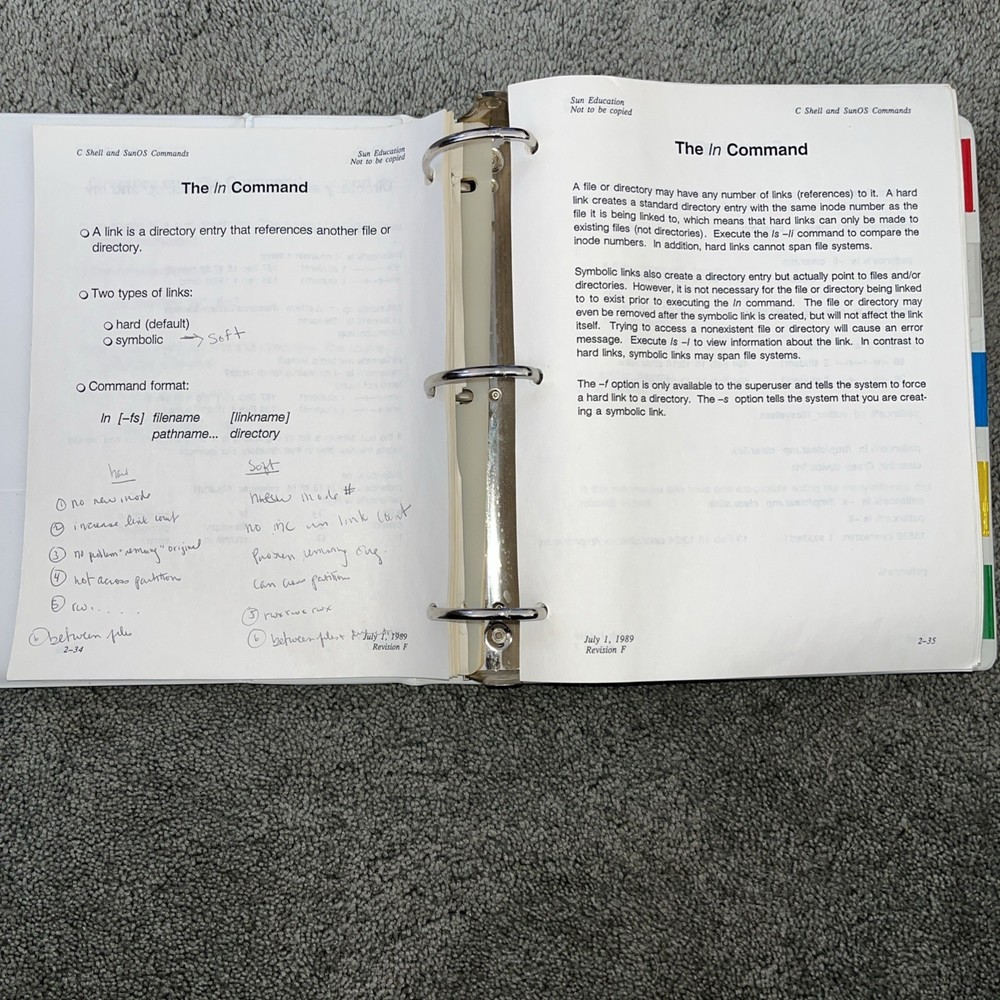 C Shell and SunOS Commands
Sun Education
Not to be copied
The ln Command
A link is a directory entry that references another file or
directory.
Two types of links:
hard (default)
symbolic → Soft
Command format:
ln [–fs] filename [linkname]
pathname... directory
hard Soft
① no new inode new inode #
② increase link count no inc in link count
③ no problem "removing" original Problem removing orig.
④ not across partition can cross partition
⑤ rw..... ⑤ rwxrwxrwx
⑥ between files ⑥ between files +
2-34
July 1, 1989
Revision F
Sun Education
Not to be copied
C Shell and SunOS Commands
The ln Command
A file or directory may have any number of links (references) to it. A hard
link creates a standard directory entry with the same inode number as the
file it is being linked to, which means that hard links can only be made to
existing files (not directories). Execute the ls –li command to compare the
inode numbers. In addition, hard links cannot span file systems.
Symbolic links also create a directory entry but actually point to files and/or
directories. However, it is not necessary for the file or directory being linked
to to exist prior to executing the ln command. The file or directory may
even be removed after the symbolic link is created, but will not affect the link
itself. Trying to access a nonexistent file or directory will cause an error
message. Execute ls –l to view information about the link. In contrast to
hard links, symbolic links may span file systems.
The –f option is only available to the superuser and tells the system to force
a hard link to a directory. The –s option tells the system that you are creat-
ing a symbolic link.
July 1, 1989
Revision F
2-35